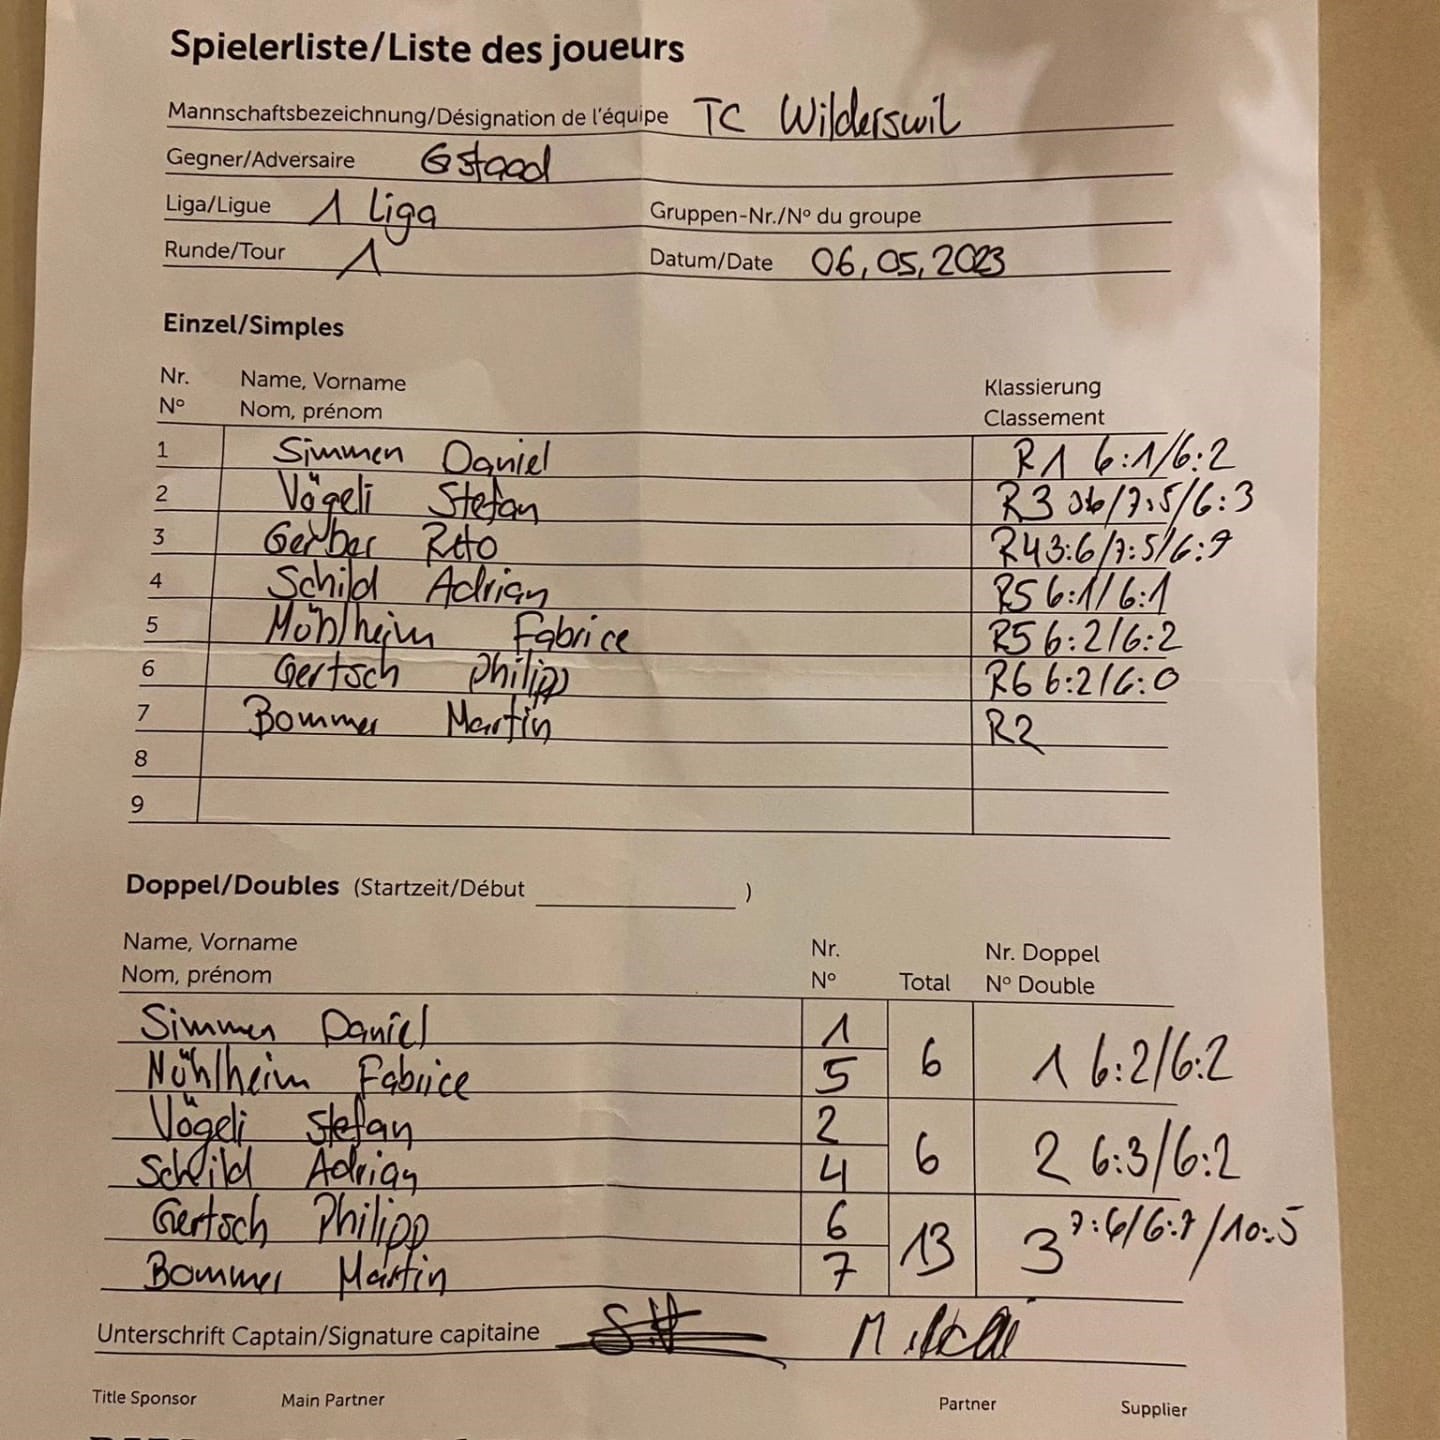 Spielerliste/Liste des joueurs
Mannschaftsbezeichnung/Désignation de l'équipe TC Wilderswil
Gegner/Adversaire Gstaad
Liga/Ligue 1 Liga Gruppen-Nr./N° du groupe
Runde/Tour 1 Datum/Date 06.05.2023
Einzel/Simples
Nr. Name, Vorname Klassierung
N° Nom, prénom Classement
1 Simmen Daniel R1 6:1/6:2
2 Vögeli Stefan R3 36/7:5/6:3
3 Gerber Reto R4 3:6/7:5/6:
4 Schild Adrian R5 6:1/6:1
5 Mühlheim Fabrice R5 6:2/6:2
6 Gertsch Philipp R6 6:2/6:0
7 Bommer Martin R2
8
9
Doppel/Doubles (Startzeit/Début )
Name, Vorname Nr. Nr. Doppel
Nom, prénom N° Total N° Double
Simmen Daniel 1
6 1 6:2/6:2
Mühlheim Fabrice 5
Vögeli Stefan 2
6 2 6:3/6:2
Schild Adrian 4
Gertsch Philipp 6
13 3 7:6/6:7/10:5
Bommer Martin 7
Unterschrift Captain/Signature capitaine
Title Sponsor Main Partner Partner Supplier